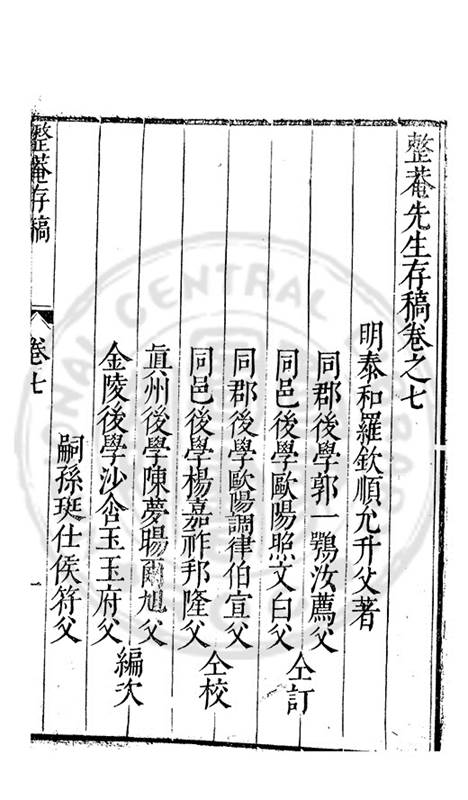 整菴先生存稿卷之七
明泰和羅欽順允升父著
同郡後學郭一鶚汝薦父
同邑後學歐陽照文白父
仝訂
同郡後學歐陽調律伯宣父
同邑後學楊嘉祚邦隆父
仝校
眞州後學陳夢暘爾旭父
金陵後學沙含玉玉府父
編次
嗣孫珽仕侯符父
整菴存稿
卷七
一
NATIONAL CENTRAL LIBRARY